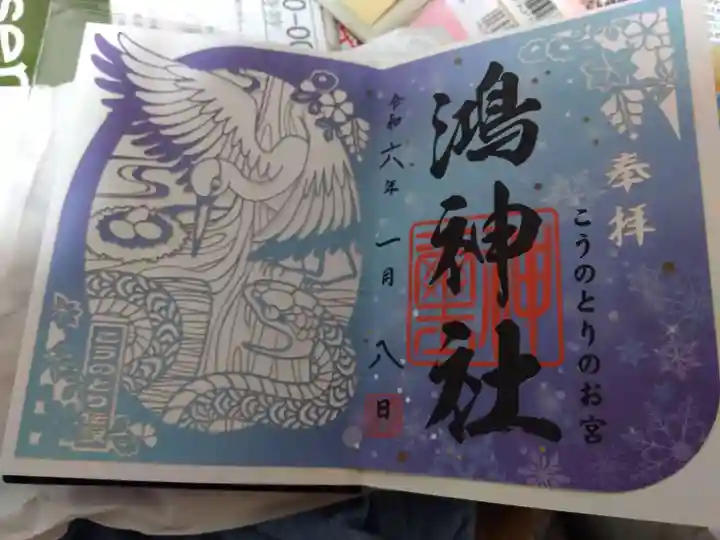 奉拝
こうのとりのお宮
鴻神社
令和六年
一月
八日
こうのとり